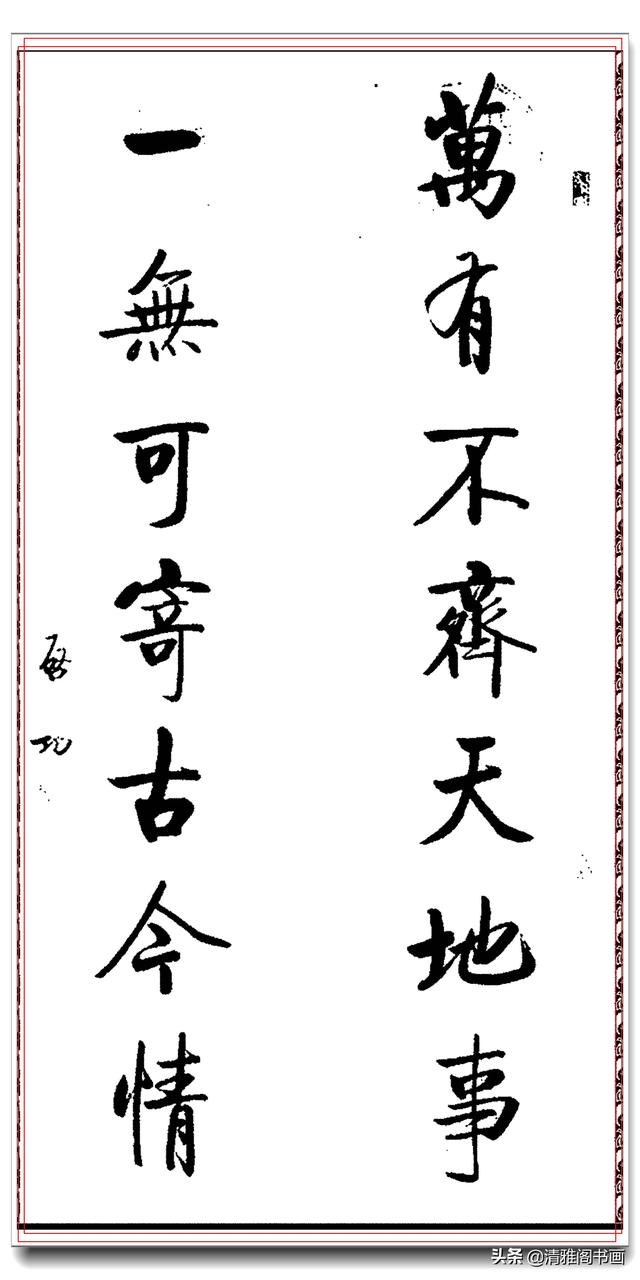 萬有不齊天地事
一無可寄古今情
啓功
头条 @清雅阁书画